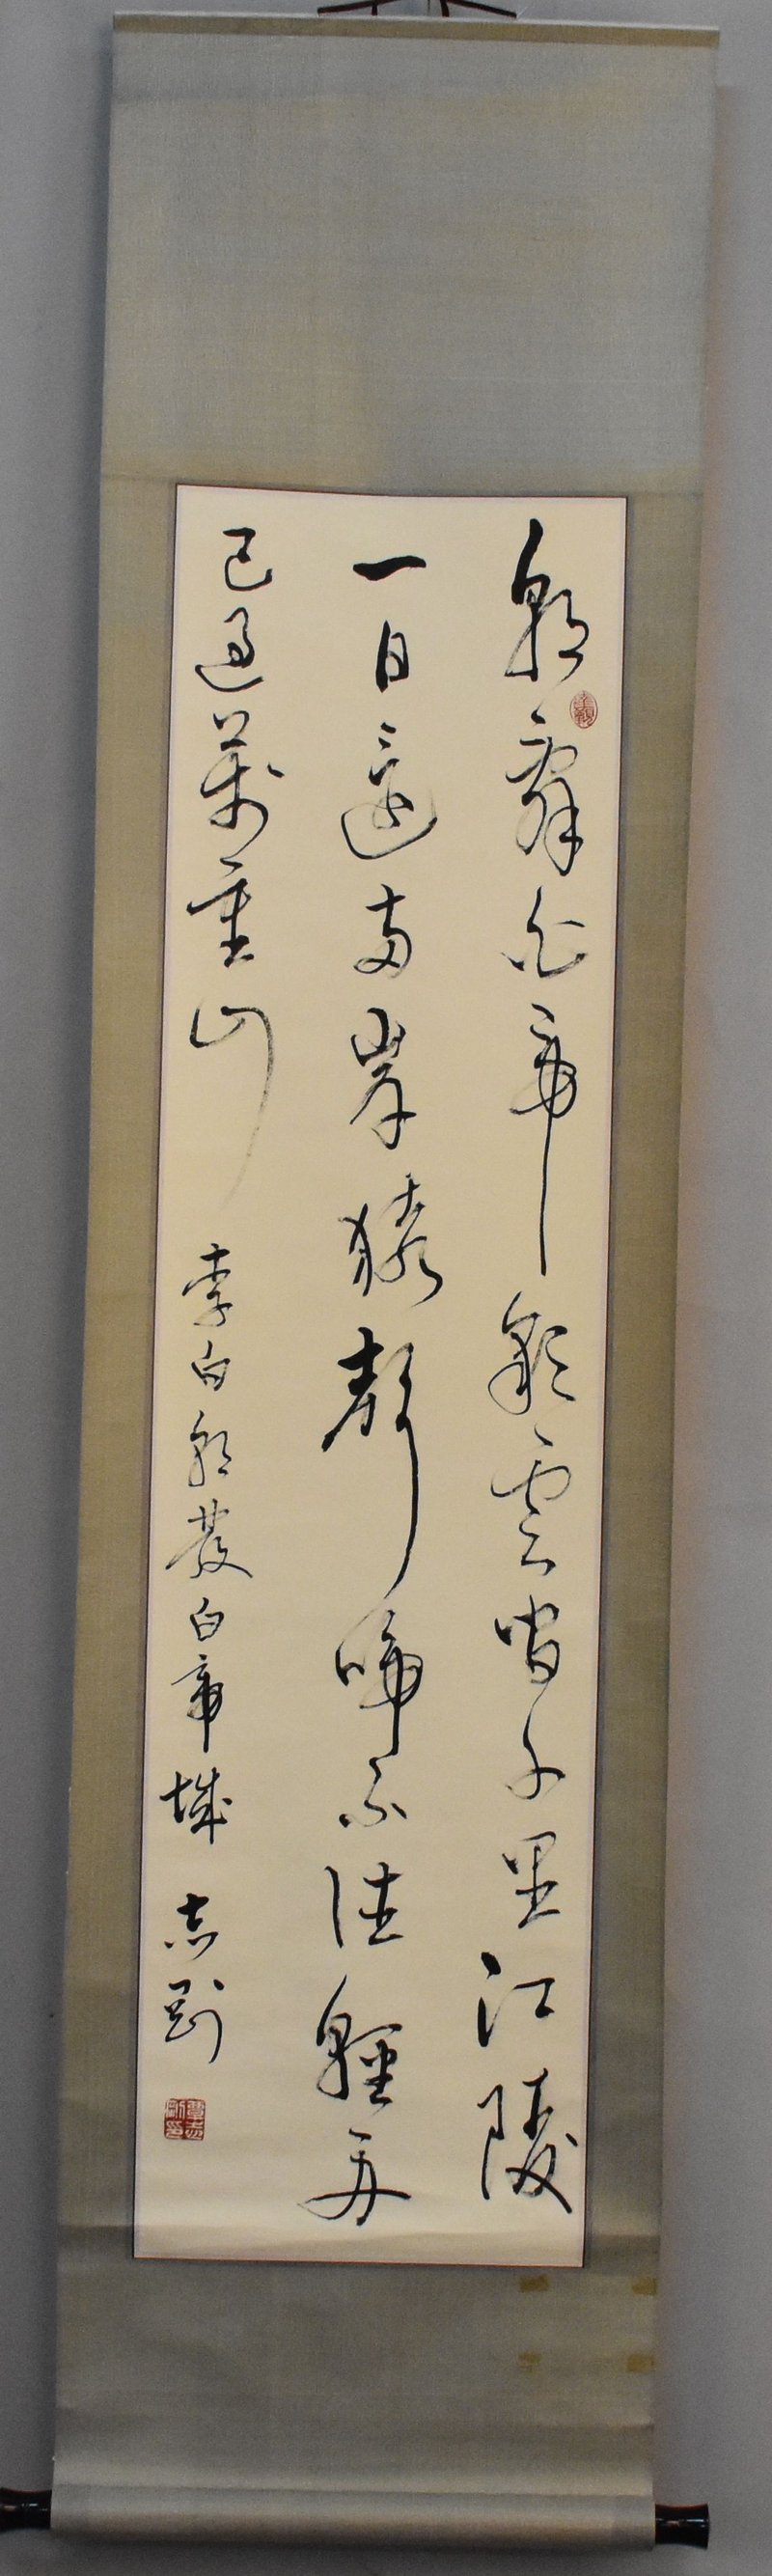 朝辭白帝彩雲間千里江陵
一日還兩岸猿聲啼不住輕舟
已過萬重山 李白朝發白帝城 志剛